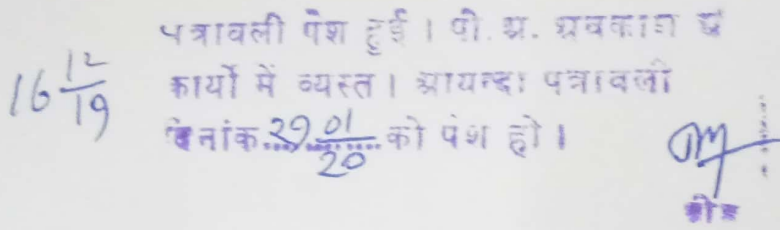 16 12/19
पत्रावली पेश हुई । पी. अ. अवकाश
कार्यो में व्यस्त । आयन्दा पत्रावली
दिनांक 29 01/20 को पेश हो ।